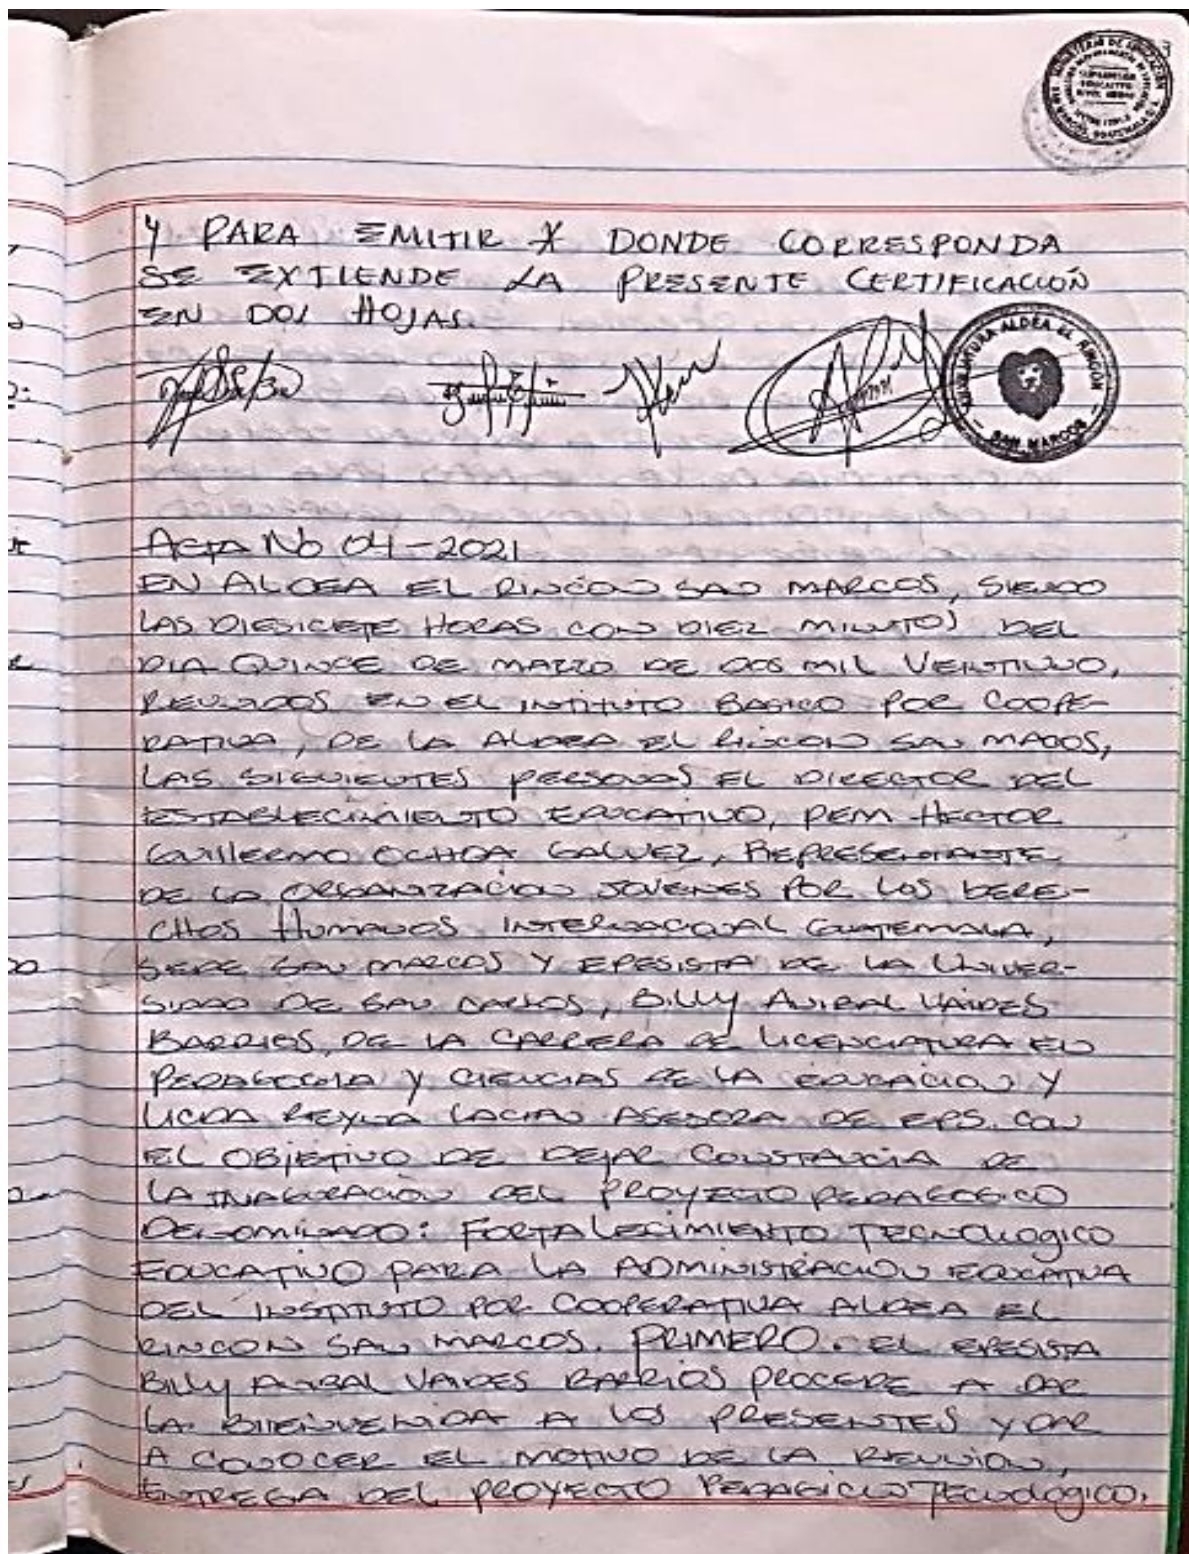 Y PARA EMITIR X DONDE CORRESPONDA
SE EXTIENDE LA PRESENTE CERTIFICACIÓN
EN DOS HOJAS.
ALDEA EL RINCON
SAN MARCOS
ACTA No 04-2021
EN ALDEA EL RINCÓN SAN MARCOS, SIENDO
LAS DIESICIETE HORAS CON DIEZ MINUTOS DEL
DIA QUINCE DE MARZO DE DOS MIL VEINTIUNO,
REUNIDOS EN EL INTITUTO BASICO POR COOPE-
RATIVA, DE LA ALDEA EL RINCON SAN MACOS,
LAS SIGUIENTES PERSONAS EL DIRECTOR DEL
ESTABLECIMIENTO EDUCATIVO, PEM HECTOR
GUILLERMO OCHOA GALVEZ, REPRESENTANTE
DE LA ORGANIZACION JOVENES POR LOS DERE-
CHOS HUMANOS INTERNACIONAL GUATEMALA,
SEDE SAN MARCOS Y EPESISTA DE LA UNIVER-
SIDAD DE SAN CARLOS, BILLY ANIBAL VAIDES
BARRIOS, DE LA CARRERA DE LICENCIATURA EN
PEDAGOGIA Y CIENCIAS DE LA EDUCACION Y
LICDA REYNA ASESORA DE EPS. CON
EL OBJETIVO DE DEJAR CONSTANCIA DE
LA INAGURACIÓN DEL PROYECTO PEDAGOGICO
DENOMINADO: FORTALECIMIENTO TECNOLOGICO
EDUCATIVO PARA LA ADMINISTRACION EDUCATIVA
DEL INSTITUTO POR COOPERATIVA ALDEA EL
RINCON SAN MARCOS. PRIMERO. EL EPESISTA
BILLY ANIBAL VAIDES BARRIOS PROCEDE A DAR
LA BIENVENIDA A LOS PRESENTES Y DAR
A CONOCER EL MOTIVO DE LA REUNIÓN,
ENTREGA DEL PROYECTO TECNOLOGICO.